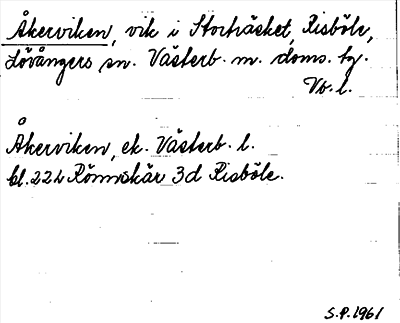 Åkerviken, vik i Storträsket, Risböle,
Lövångers sn. Västerb. m. doms. tg.
Vb. l.
Åkerviken, ek. Västerb. l.
bl. 22L Rönnskär 3d Risböle.
S.P. 1961